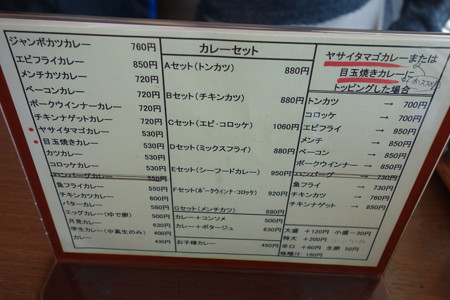 ジャンボカツカレー 760円
エビフライカレー 850円
メンチカツカレー 720円
ベーコンカレー 720円
ポークウインナーカレー 720円
チキンナゲットカレー 720円
ヤサイタマゴカレー 530円
目玉焼きカレー 530円
カツカレー 530円
コロッケカレー 530円
ハンバーグカレー 550円
魚フライカレー 550円
チキンカツカレー 600円
バターカレー 500円
エッグカレー(ゆで卵) 500円
月見カレー 430円
学生カレー(中高生のみ) 400円
カレー
カレーセット
Aセット(トンカツ) 880円
Bセット(チキンカツ) 880円
Cセット(エビ・コロッケ) 1060円
Dセット(ミックスフライ) 880円
Eセット(シーフードカレー) 950円
Fセット(ポークウインナ・コロッケ) 920円
Gセット(メンチカツ) 880円
カレー+コンソメ 500円
カレー+ポタージュ 630円
お子様カレー 450円
ヤサイタマゴカレーまたは
目玉焼きカレーに
トッピングした場合
トンカツ → 700円
コロッケ → 700円
エビフライ → 950円
メンチ → 850円
ベーコン → 850円
ポークウインナー → 850円
ハンバーグ → 730円
魚フライ → 730円
チキンカツ → 760円
チキンナゲット → 850円
大盛 +120円 小盛-30円
特大 +200円
辛口 +60円 生卵 50円
味噌汁 150円